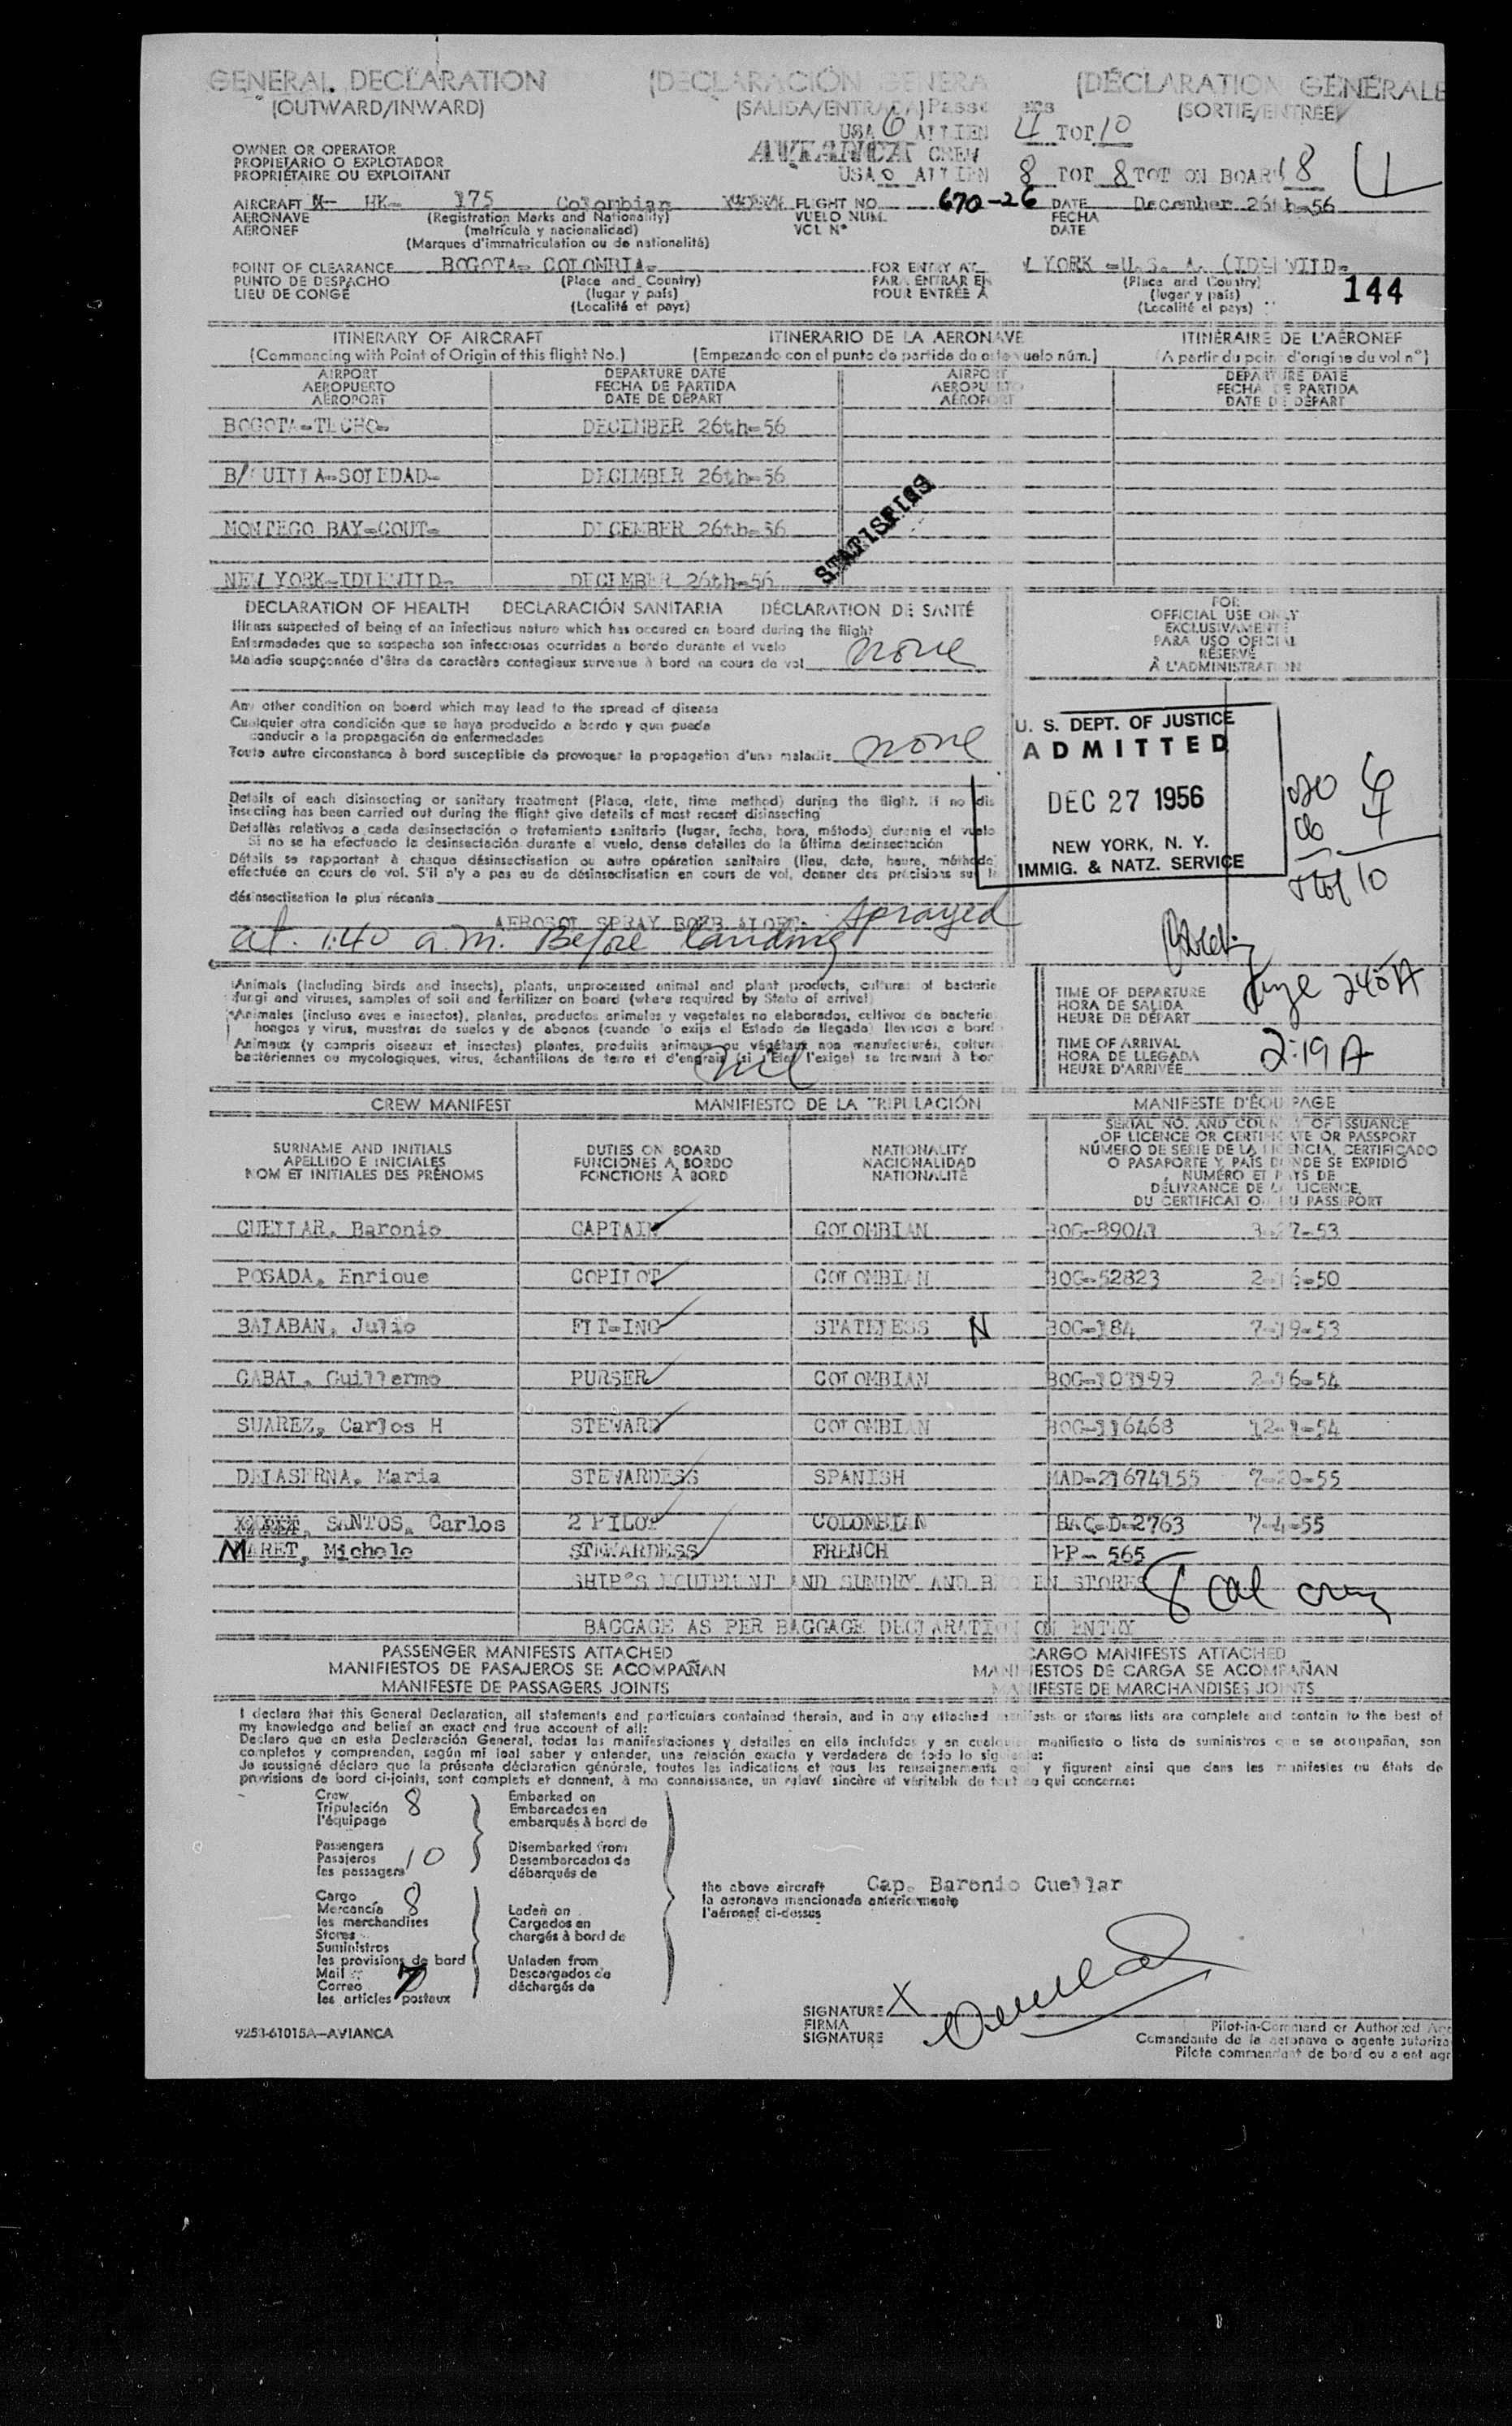 GENERAL DECLARATION (DECLARACIÓN GENERA (DÉCLARATION GÉNÉRALE
(OUTWARD/INWARD) (SALIDA/ENTRADA) Passe (SORTIE/ENTRÉE)
USA 6 ALLIEN 4 TOT 10
AVIANCA CREW
USA 0 ALLIEN 8 TOT 8 TOT ON BOARD 18
OWNER OR OPERATOR
PROPIETARIO O EXPLOTADOR
PROPRIÉTAIRE OU EXPLOITANT
AIRCRAFT HK- 175 Colombian FLIGHT NO. 670-26 DATE December 26th-56
AERONAVE (Registration Marks and Nationality) VUELO NUM. FECHA
AÉRONEF (matrícula y nacionalidad) VOL N° DATE
(Marques d'immatriculation ou de nationalité)
POINT OF CLEARANCE BOGOTA- COLOMBIA- FOR ENTRY AT YORK -U.S. A. (IDLEWILD-
PUNTO DE DESPACHO (Place and Country) PARA ENTRAR EN (Place and Country)
LIEU DE CONGÉ (lugar y país) POUR ENTRÉE À (lugar y país)
(Localité et pays) (Localité et pays)
144
ITINERARY OF AIRCRAFT ITINERARIO DE LA AERONAVE ITINÉRAIRE DE L'AÉRONEF
(Commencing with Point of Origin of this flight No.) (Empezando con el punto de partida de este vuelo núm.) (A partir du point d'origine du vol n°)
AIRPORT DEPARTURE DATE AIRPORT DEPARTURE DATE
AEROPUERTO FECHA DE PARTIDA AEROPUERTO FECHA DE PARTIDA
AÉROPORT DATE DE DÉPART AÉROPORT DATE DE DÉPART
BOGOTA-TECHO- DECEMBER 26th-56
B/QUILLA-SOLEDAD- DECEMBER 26th-56
MONTEGO BAY-COUT- DECEMBER 26th-56
NEW YORK-IDLEWILD- DECEMBER 26th-56
STATISTICS
DECLARATION OF HEALTH DECLARACIÓN SANITARIA DÉCLARATION DE SANTÉ
Illness suspected of being of an infectious nature which has occured on board during the flight
Enfermedades que se sospecha son infecciosas ocurridas a bordo durante el vuelo
Maladie soupçonnée d'être de caractère contagieux survenue à bord en cours de vol none
Any other condition on board which may lead to the spread of disease
Cualquier otra condición que se haya producido a bordo y que pueda
conducir a la propagación de enfermedades
Toute autre circonstance à bord susceptible de provoquer la propagation d'une maladie none
Details of each disinsecting or sanitary treatment (Place, date, time method) during the flight. If no dis
insecting has been carried out during the flight give details of most recent disinsecting
Detalles relativos a cada desinsectación o tratamiento sanitario (lugar, fecha, hora, método) durante el vuelo
Si no se ha efectuado la desinsectación durante el vuelo, dense detalles de la última desinsectación
Détails se rapportant à chaque désinsectisation ou autre opération sanitaire (lieu, date, heure, méthode)
effectuée en cours de vol. S'il n'y a pas eu de désinsectisation en cours de vol, donner des précisions sur la
désinsectisation la plus récente
AEROSOL SPRAY BOMB ALOFT- sprayed
at 1:40 a.m. Before landing
FOR
OFFICIAL USE ONLY
EXCLUSIVAMENTE
PARA USO OFICIAL
RÉSERVÉ
À L'ADMINISTRATION
U. S. DEPT. OF JUSTICE
ADMITTED
DEC 27 1956
NEW YORK, N. Y.
IMMIG. & NATZ. SERVICE
6
4
10
Animals (including birds and insects), plants, unprocessed animal and plant products, cultures of bacteria
fungi and viruses, samples of soil and fertilizer on board (where required by State of arrival)
Animales (incluso aves e insectos), plantas, productos animales y vegetales no elaborados, cultivos de bacteria
hongos y virus, muestras de suelos y de abonos (cuando lo exija el Estado de llegada) llevados a bordo
Animaux (y compris oiseaux et insectes) plantes, produits animaux ou végétaux non manufacturés, culture
bactériennes ou mycologiques, virus, échantillons de terre et d'engrais (si l'État l'exige) se trouvant à bor
nil
TIME OF DEPARTURE 245A
HORA DE SALIDA
HEURE DE DÉPART
TIME OF ARRIVAL 2:19 A
HORA DE LLEGADA
HEURE D'ARRIVÉE
CREW MANIFEST MANIFIESTO DE LA TRIPULACIÓN MANIFESTE D'ÉQUIPAGE
SURNAME AND INITIALS DUTIES ON BOARD NATIONALITY SERIAL NO. AND COUNTRY OF ISSUANCE
APELLIDO E INICIALES FUNCIONES A BORDO NACIONALIDAD OF LICENCE OR CERTIFICATE OR PASSPORT
NOM ET INITIALES DES PRÉNOMS FONCTIONS À BORD NATIONALITÉ NÚMERO DE SERIE DE LA LICENCIA, CERTIFICADO
O PASAPORTE Y PAÍS DONDE SE EXPIDIÓ
NUMÉRO ET PAYS DE
DÉLIVRANCE DE LA LICENCE,
DU CERTIFICAT OU DU PASSEPORT
CUELLAR, Baronio CAPTAIN COLOMBIAN BOG-89043 3-27-53
POSADA, Enrique COPILOT COLOMBIAN BOG-52823 2-16-50
BALABAN, Julio FLT-ING STATELESS N BOG-184 7-19-53
CABAL, Guillermo PURSER COLOMBIAN BOG-103199 2-16-54
SUAREZ, Carlos H STEWARD COLOMBIAN BOG-116468 12-1-54
DELASERNA, Maria STEWARDESS SPANISH MAD-21674155 7-20-55
SANTOS, Carlos 2 PILOT COLOMBIAN BAC-D-2763 7-4-55
MARET, Michele STEWARDESS FRENCH PP- 565
SHIP'S EQUIPMENT AND SUNDRY AND BROKEN STORES
8 Col crew
BAGGAGE AS PER BAGGAGE DECLARATION ON ENTRY
PASSENGER MANIFESTS ATTACHED CARGO MANIFESTS ATTACHED
MANIFIESTOS DE PASAJEROS SE ACOMPAÑAN MANIFIESTOS DE CARGA SE ACOMPAÑAN
MANIFESTE DE PASSAGERS JOINTS MANIFESTE DE MARCHANDISES JOINTS
I declare that this General Declaration, all statements and particulars contained therein, and in any attached manifests or stores lists are complete and contain to the best of
my knowledge and belief an exact and true account of all:
Declaro que en esta Declaración General, todas las manifestaciones y detalles en ella incluídos y en cualquier manifiesto o lista de suministros que se acompañan, son
completos y comprenden, según mi leal saber y entender, una relación exacta y verdadera de todo lo siguiente:
Je soussigné déclare que la présente déclaration générale, toutes les indications et tous les renseignements qui y figurent ainsi que dans les manifestes ou états de
provisions de bord ci-joints, sont complets et donnent, à ma connaissance, un relevé sincère et véritable de tout ce qui concerne:
Crew 8 Embarked on
Tripulación Embarcados en
l'équipage embarqués à bord de
Passengers 10 Disembarked from
Pasajeros Desembarcados de
les passagers débarqués de
Cargo 8
Mercancía Laden on
les marchandises Cargados en
Stores chargés à bord de
Suministros
les provisions de bord Unladen from
Mail Descargados de
Correo déchargés de
les articles postaux
the above aircraft Cap. Baronio Cuellar
la aeronave mencionada anteriormente
l'aéronef ci-dessus
SIGNATURE X
FIRMA
SIGNATURE
Pilot-in-Command or Authorized Age
Comandante de la aeronave o agente autoriza
Pilote commandant de bord ou agent agr
9253-61015A—AVIANCA